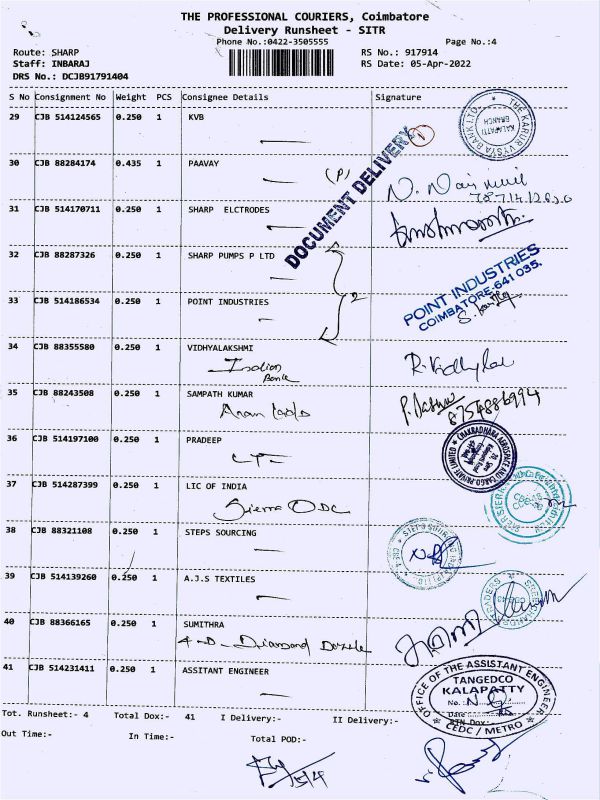 THE PROFESSIONAL COURIERS, Coimbatore
Delivery Runsheet - SITR
Phone No.:0422-3505555 Page No.:4
Route: SHARP RS No.: 917914
Staff: INBARAJ RS Date: 05-Apr-2022
DRS No.: DCJB91791404
S No Consignment No Weight PCS Consignee Details Signature
29 CJB 514124565 0.250 1 KVB
THE KARUR VYSYA BANK LTD.
KALAPATTI
BRANCH
1
30 CJB 88284174 0.435 1 PAAVAY
(P)
DOCUMENT DELIVERY
31 CJB 514170711 0.250 1 SHARP ELCTRODES
32 CJB 88287326 0.250 1 SHARP PUMPS P LTD
2
33 CJB 514186534 0.250 1 POINT INDUSTRIES
POINT INDUSTRIES
COIMBATORE-641 035.
34 CJB 88355580 0.250 1 VIDHYALAKSHMI
Indian
Bank
35 CJB 88243508 0.250 1 SAMPATH KUMAR
8754886994
36 CJB 514197100 0.250 1 PRADEEP
CHAKRADHARA AEROSPACE AND CARGO PRIVATE LIMITED
37 CJB 514287399 0.250 1 LIC OF INDIA
Sierra ODC
38 CJB 88321108 0.250 1 STEPS SOURCING
39 CJB 514139260 0.250 1 A.J.S TEXTILES
40 CJB 88366165 0.250 1 SUMITHRA
4-D-Diamond Dazzle
41 CJB 514231411 0.250 1 ASSITANT ENGINEER
OFFICE OF THE ASSISTANT ENGINEER
TANGEDCO
KALAPATTY
No.:
Date:
CEDC / METRO
Tot. Runsheet:- 4 Total Dox:- 41 I Delivery:- II Delivery:-
Out Time:- In Time:- Total POD:-